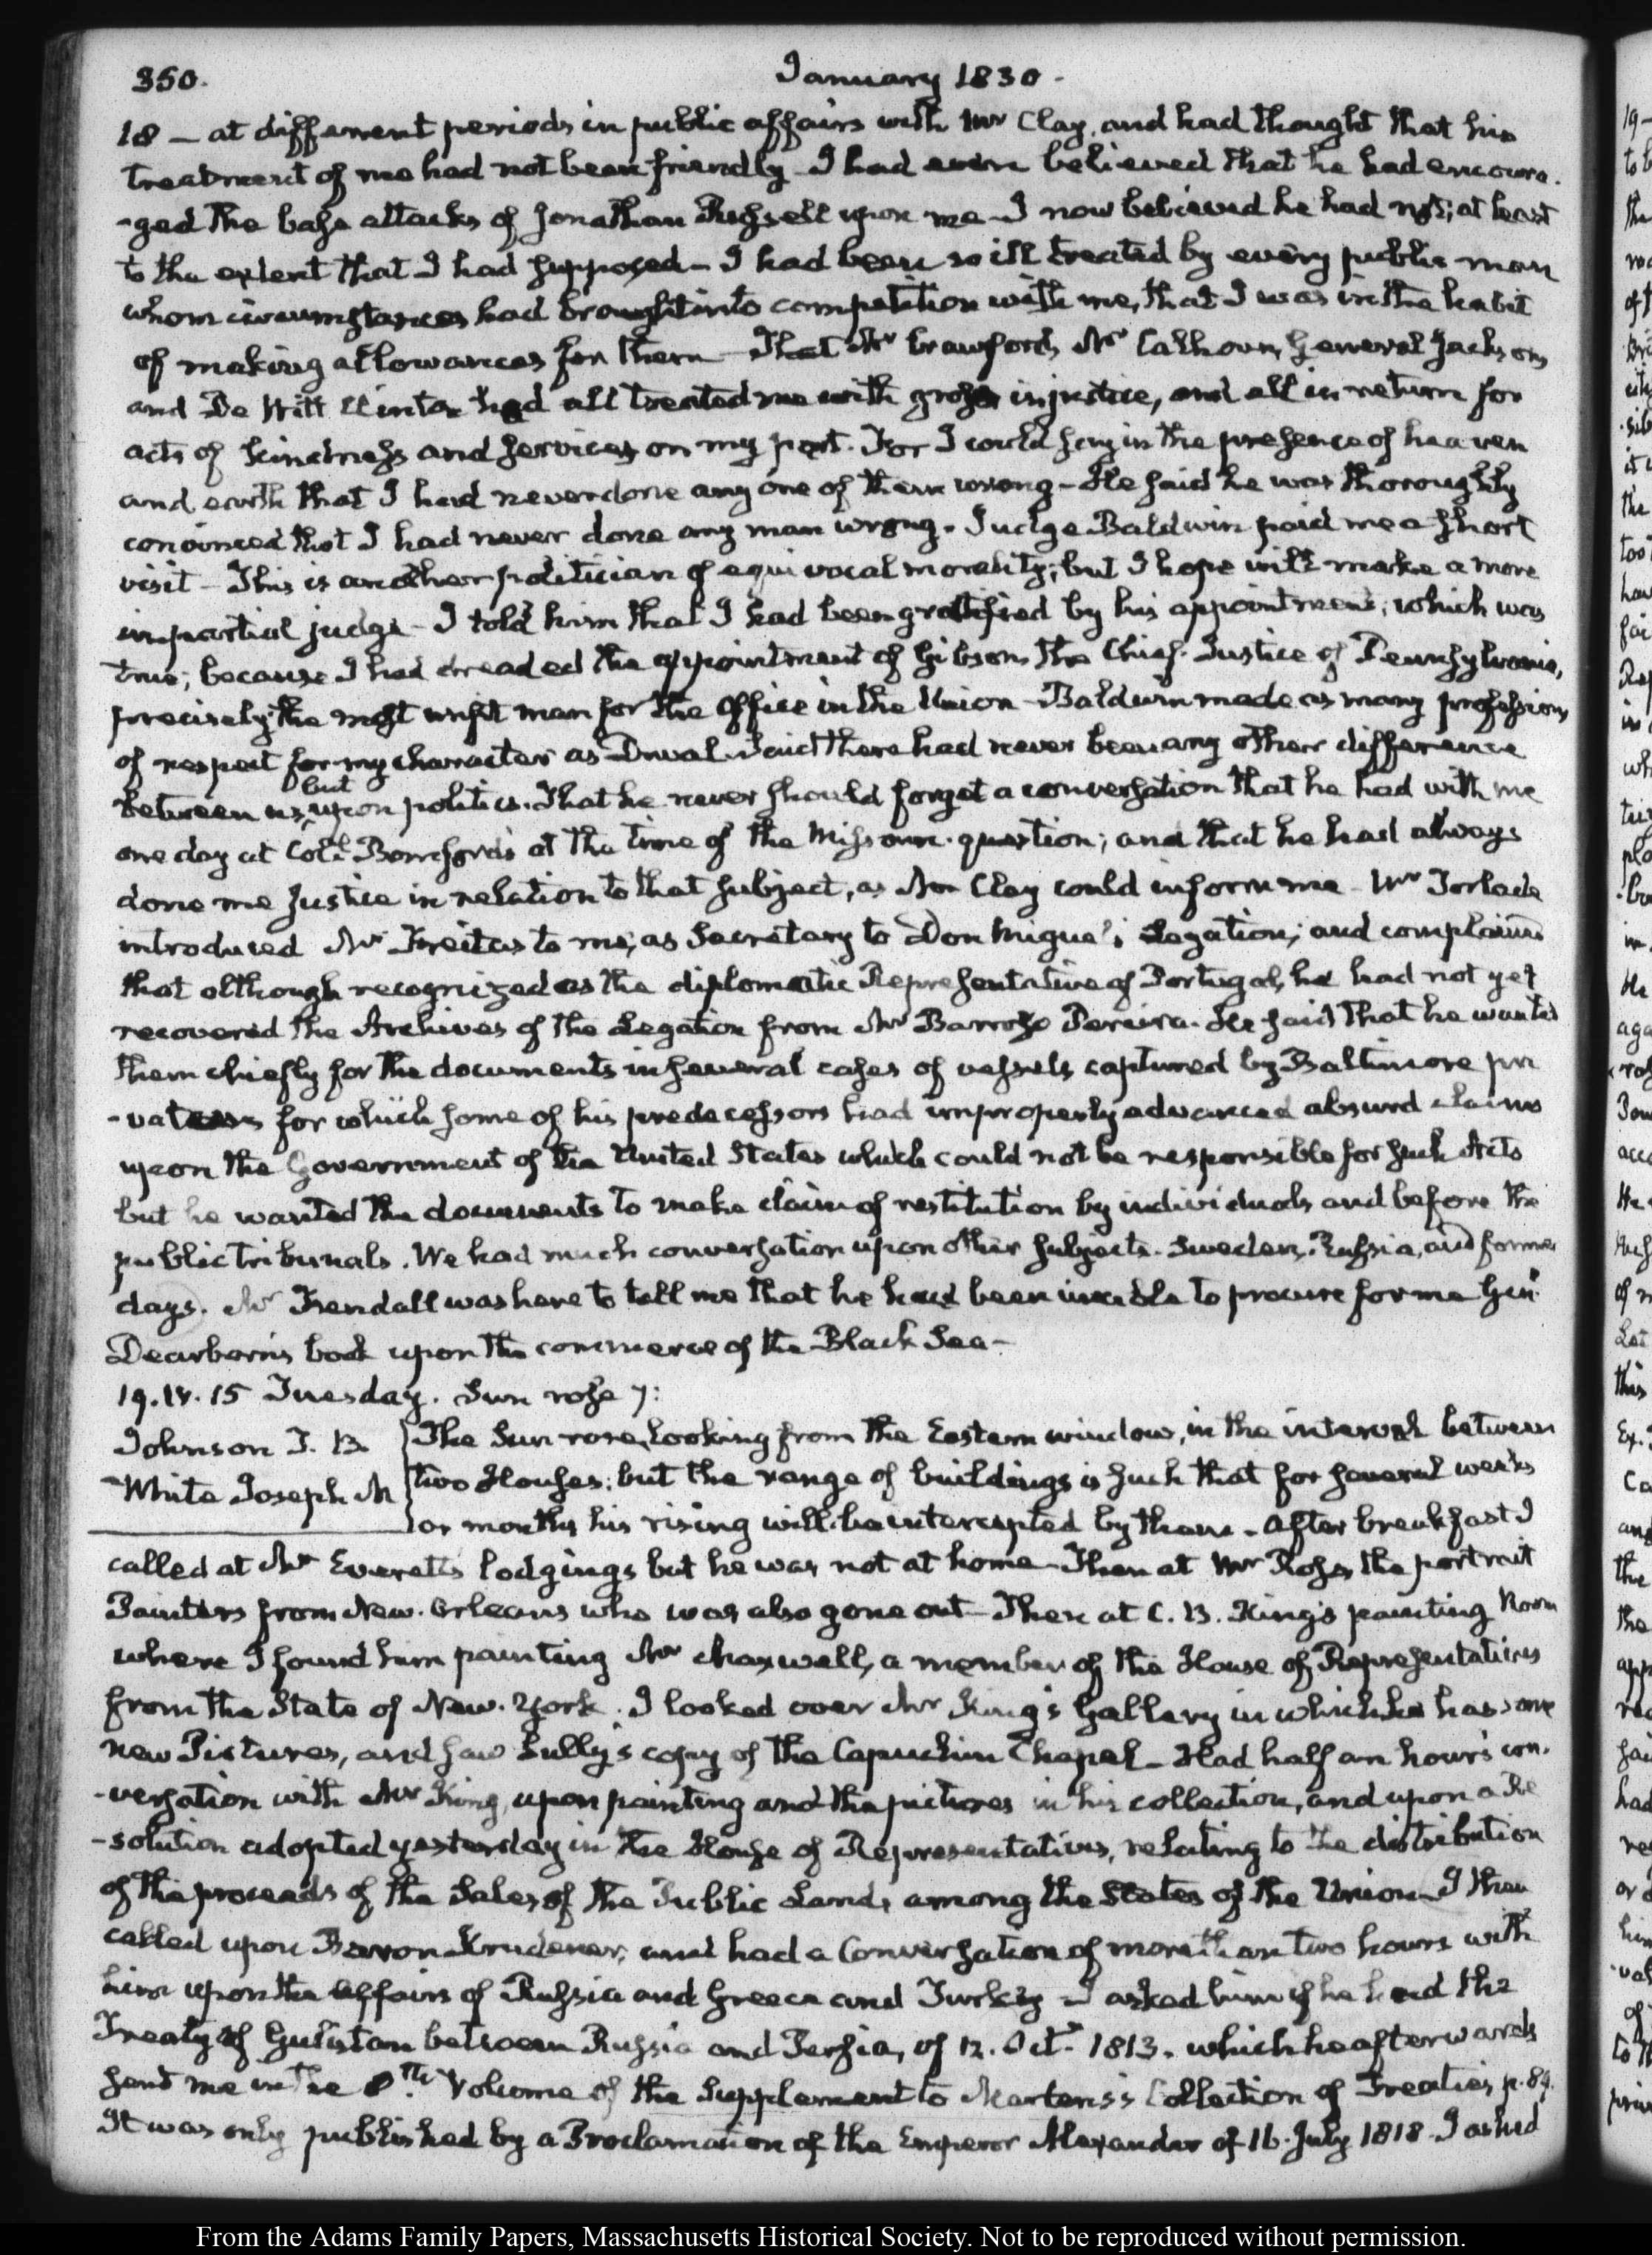 350.
January 1830.
18 — at different periods in public affairs with Mr Clay, and had thought that his
treatment of me had not been friendly — I had even believed that he had encoura-
-ged the base attacks of Jonathan Russell upon me — I now believed he had not; at least
to the extent that I had supposed — I had been so ill treated by every public man
whom circumstances had brought into competition with me, that I was in the habit
of making allowances for them — That Mr Crawford, Mr Calhoun, General Jackson,
and De Witt Clinton had all treated me with gross injustice, and all in return for
acts of kindness and services on my part. For I could say in the presence of heaven
and earth that I had never done any one of them wrong — He said he was thoroughly
convinced that I had never done any man wrong. Judge Baldwin paid me a short
visit — This is another politician of equivocal morality; but I hope will make a more
impartial judge — I told him that I had been gratified by his appointment; which was
true; because I had dreaded the appointment of Gibson, the Chief Justice of Pennsylvania,
precisely the most unfit man for the Office in the Union — Baldwin made as many professions
of respect for my character as Duval. Said there had never been any other difference
between us, but upon politics. That he never should forget a conversation that he had with me
one day at Coll. Bomford's at the time of the Missouri question; and that he had always
done me justice in relation to that subject, as Mr Clay could inform me — Mr Torlade
introduced Mr Freitas to me, as Secretary to Don Miguel's Legation; and complains
that although recognized as the diplomatic Representative of Portugal, he had not yet
recovered the Archives of the Legation from Mr Barrozo Pereira. He said that he wanted
them chiefly for the documents in several cases of vessels captured by Baltimore pri
-vateers for which some of his predecessors had improperly advanced absurd claims
upon the Government of the United States which could not be responsible for such Acts
but he wanted the documents to make claim of restitution by individuals and before the
public tribunals. We had much conversation upon other subjects. Sweden, Russia, and former
days. Mr Kendall was here to tell me that he had been unable to procure for me Genl.
Dearborn's book upon the commerce of the Black Sea —
19. IV. 15 Tuesday. Sun rose 7:
Johnson J. B.
White Joseph M
The Sun rose, looking from the Eastern window, in the interval between
two Houses: but the range of buildings is such that for several weeks
or months his rising will be intercepted by them — After breakfast I
called at Mr Everett's lodgings but he was not at home — Then at Mr Ross, the portrait
Painters from New-Orleans who was also gone out — Then at C. B. King's painting Room
where I found him painting Mr Maxwell, a member of the House of Representatives
from the State of New-York. I looked over Mr King's Gallery in which he has some
new Pictures, and saw Sully's copy of the Capuchin Chapel — Had half an hour's con-
-versation with Mr King, upon painting and the pictures in his collection, and upon a Re
-solution adopted yesterday in the House of Representatives, relating to the distribution
of the proceeds of the Sales of the Public Lands among the States of the Union — I then
called upon Baron Krudener, and had a Conversation of more than two hours with
him upon the affairs of Russia and Greece and Turkey — I asked him if he had the
Treaty of Gulistan between Russia and Persia, of 12. Octr. 1813. which he afterwards
sent me in the 8th. Volume of the Supplement to Martens's Collection of Treaties p. 89.
It was only published by a Proclamation of the Emperor Alexander of 16. July 1818. I asked
From the Adams Family Papers, Massachusetts Historical Society. Not to be reproduced without permission.